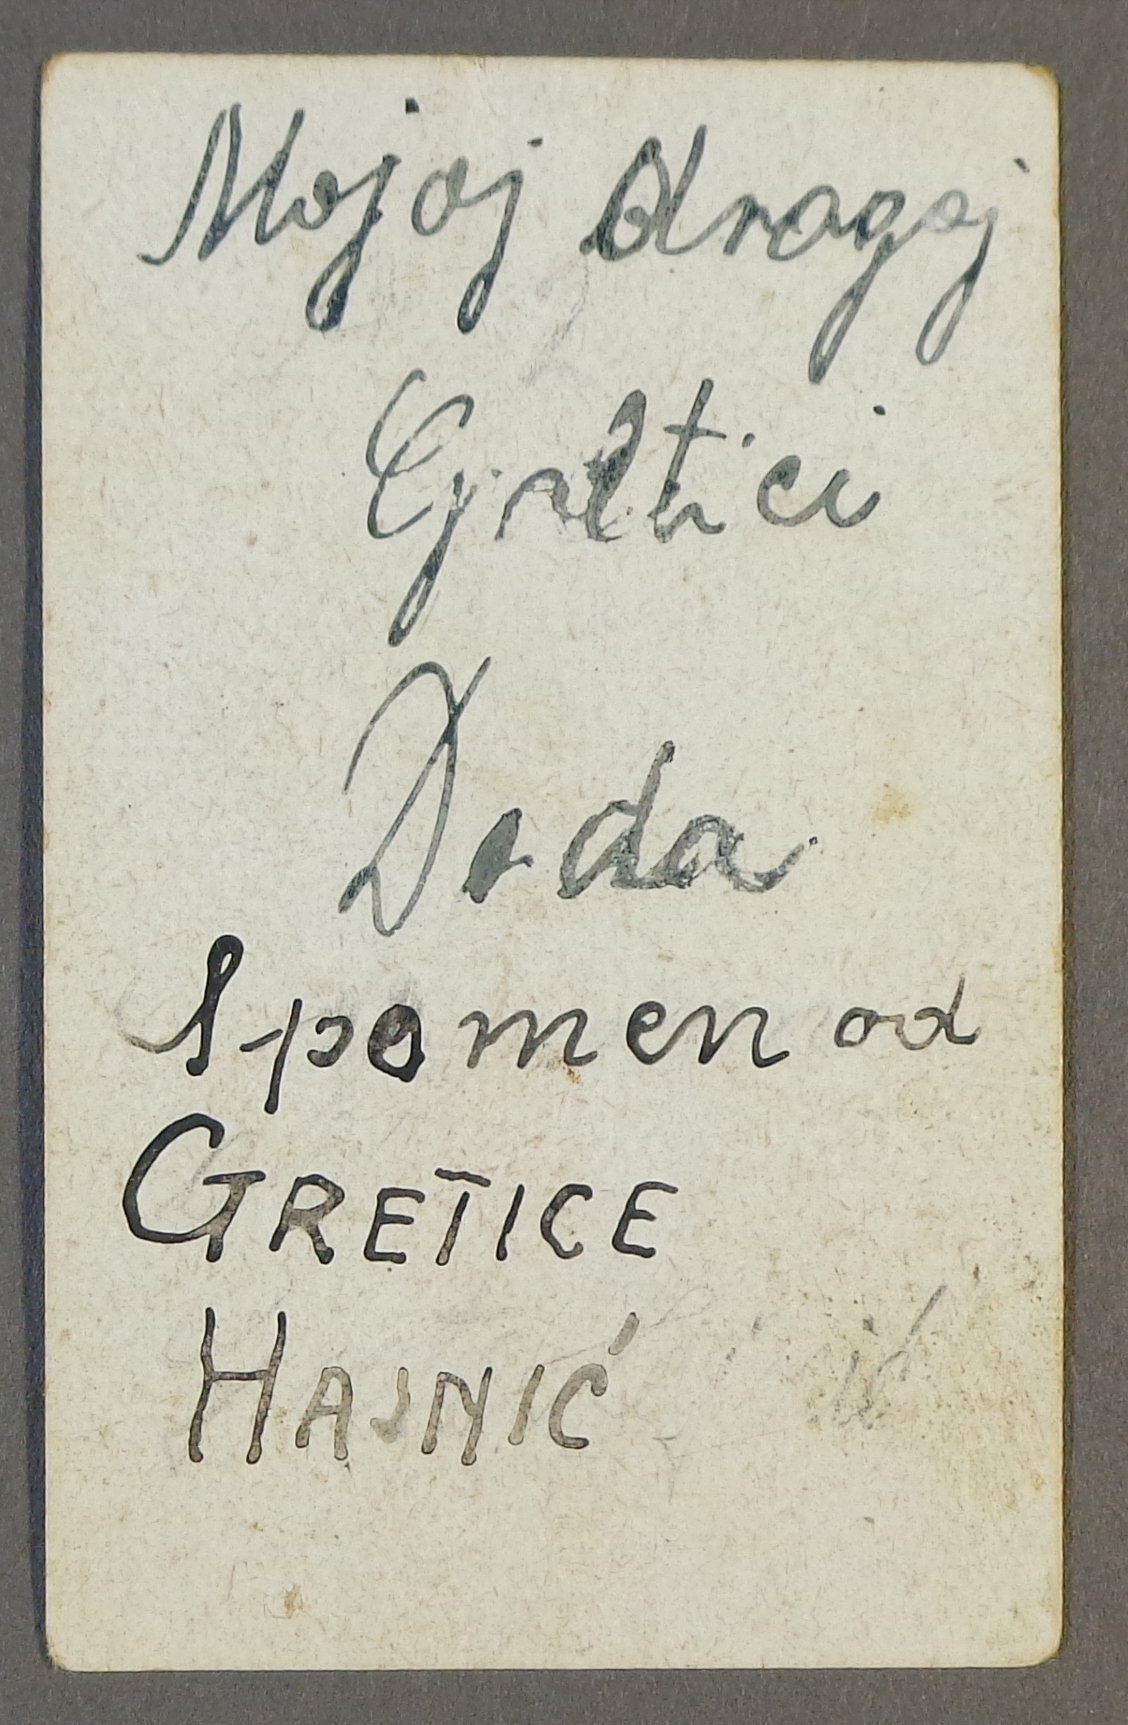 Mojoj dragoj
Gretici
Deda
Spomen od
GRETICE
HAJNIĆ